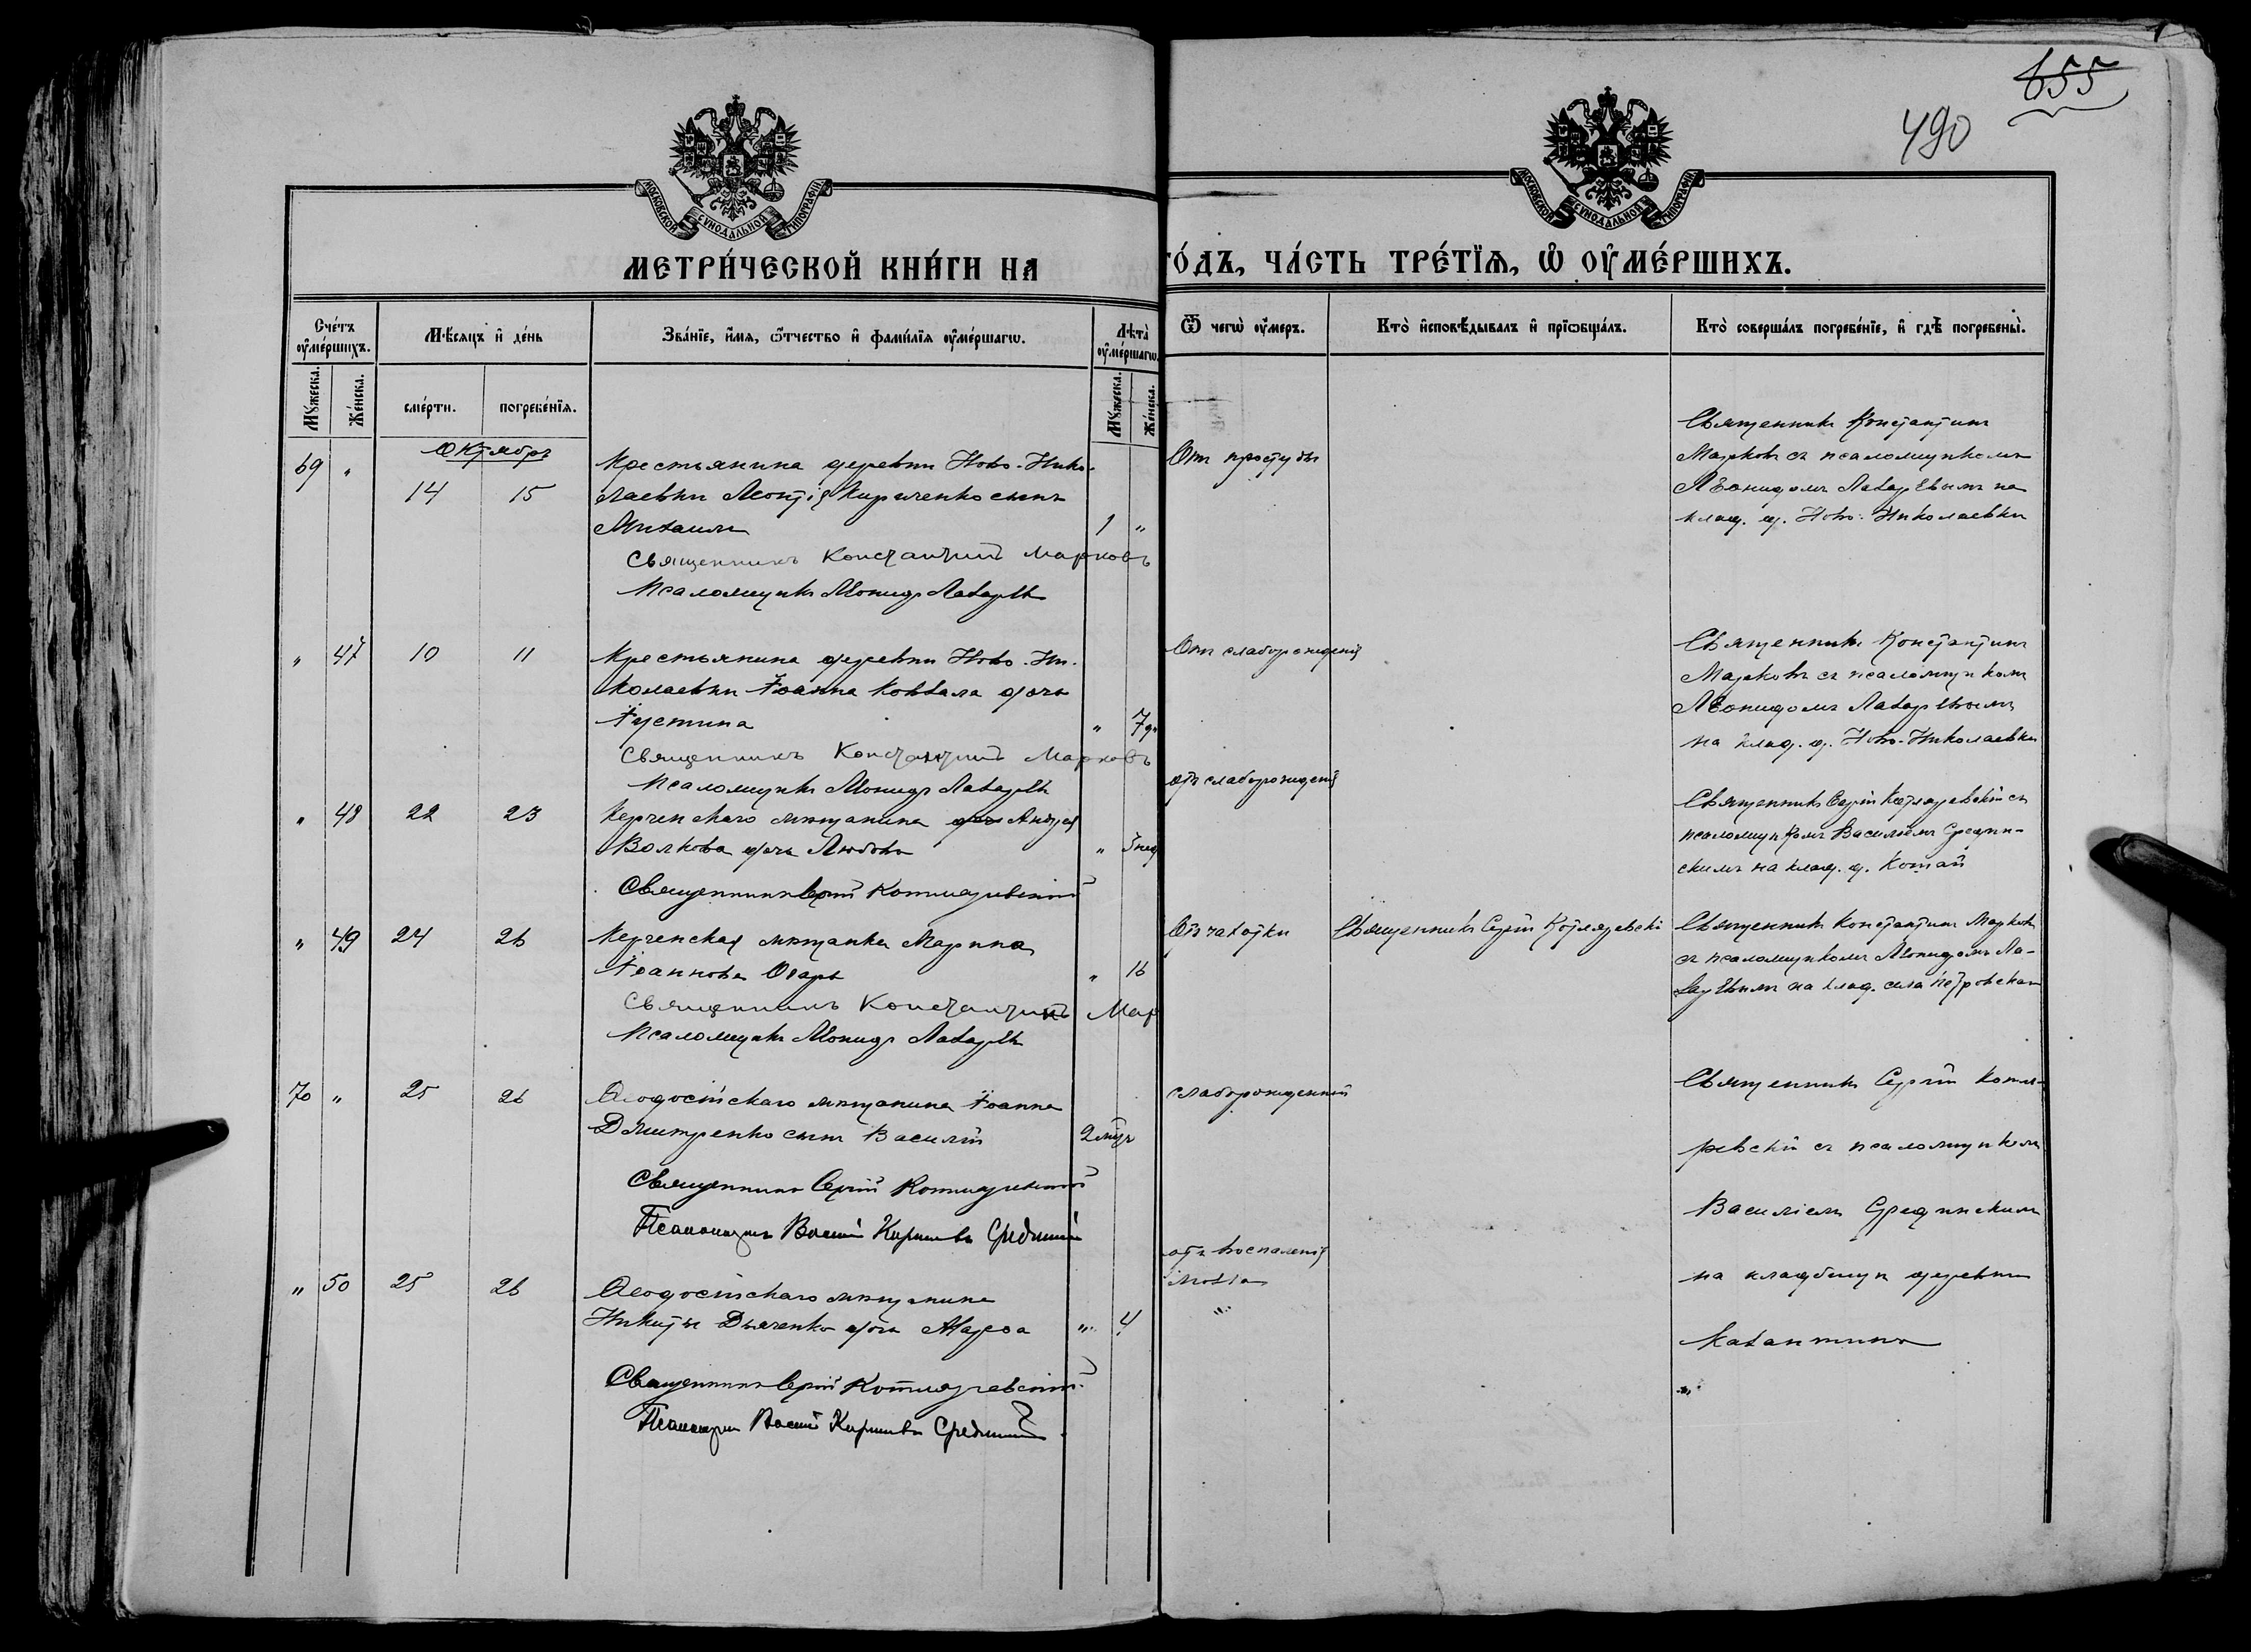 655
490
МОСКОВСКОЙ СѴНОДАЛЬНОЙ ТИПОГРАФІИ
МОСКОВСКОЙ СѴНОДАЛЬНОЙ ТИПОГРАФІИ
МЕТРИ́ЧЕСКОЙ КНИ́ГИ НА
ГО́ДЪ, ЧА́СТЬ ТРЕ́ТЇѦ, Ѡ҆ ОУ҆МЕ́РШИХЪ.
Сче́тъ оу҆ме́ршихъ.
Мѣ́сяцъ и҆ де́нь
Зва́нїе, и҆́мѧ, ѻ҆́тчество и҆ фами́лїѧ оу҆ме́ршагѡ.
Лѣта̀ оу҆ме́ршагѡ.
Ѿ чегѡ̀ оу҆́меръ.
Кто̀ и҆сповѣ́дывалъ и҆ прїѡбща́лъ.
Кто̀ соверша́лъ погребе́нїе, и҆ гдѣ̀ погребены̀.
Му́жеска.
Же́нска.
сме́рти.
погребе́нїѧ.
Му́жеска.
Же́нска.
Октябрь
69 " 14 15
Крестьянина деревни Ново-Нико-
лаевки Леонтія Кириченко сынъ
Михаилъ 1 "
Священникъ Константинъ Марковъ
Псаломщикъ Леонидъ Лазаревъ
Отъ простуды
Священникъ Константинъ
Марковъ съ псаломщикомъ
Леонидомъ Лазаревымъ на
клад. д. Ново-Николаевки
" 47 10 11
Крестьянина деревни Ново-Ни-
колаевки Іоанна Коваля дочь
Іустина " 7 дн
Священникъ Константинъ Марковъ
Псаломщикъ Леонидъ Лазаревъ
Отъ слаборожденія
Священникъ Константинъ
Марковъ съ псаломщикомъ
Леонидомъ Лазаревымъ
на клад. д. Ново-Николаевки
" 48 22 23
Керченскаго мѣщанина дочь Андрея
Волкова дочь Любовь " 3 нед
Священникъ Сергій Котляревскій
отъ слаборожденія
Священникъ Сергій Котляревскій съ
псаломщикомъ Василіемъ Средин-
скимъ на клад. д. Китай
" 49 24 26
Керченская мѣщанка Марина
Іоаннова " 16
Священникъ Константинъ Мар
Псаломщикъ Леонидъ Лазаревъ
Отъ чахотки
Священникъ Сергій Котляревскій
Священникъ Константинъ Марковъ
съ псаломщикомъ Леонидомъ Ла-
заревымъ на клад. села Петровскаго
70 " 25 26
Ѳеодосійскаго мѣщанина Іоанна
Дмитренко сынъ Василій 2 мѣс
Священникъ Сергій Котляревскій
Псаломщикъ Василій Срединскій
слаборожденный
Священникъ Сергій Котля-
ревскій съ псаломщикомъ
Василіемъ Срединскимъ
на кладбищѣ деревни
" 50 25 26
Ѳеодосійскаго мѣщанина
Никиты Дьяченко дочь Марѳа " 4
Священникъ Сергій Котляревскій
Псаломщикъ Василій Срединскій
отъ воспаленія
мозга
"
"